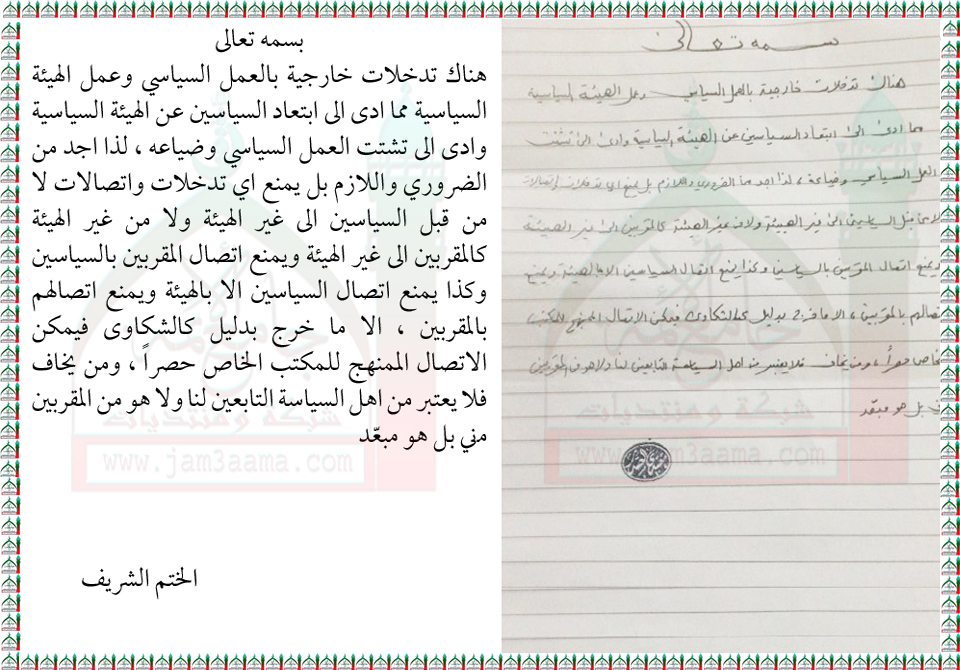 بسمه تعالى
هناك تدخلات خارجية بالعمل السياسي وعمل الهيئة
السياسية مما ادى الى ابتعاد السياسين عن الهيئة السياسية
وادى الى تشتت العمل السياسي وضياعه ، لذا اجد من
الضروري واللازم بل يمنع اي تدخلات واتصالات لا
من قبل السياسين الى غير الهيئة ولا من غير الهيئة
كالمقربين الى غير الهيئة ويمنع اتصال المقربين بالسياسين
وكذا يمنع اتصال السياسين الا بالهيئة ويمنع اتصالهم
بالمقربين ، الا ما خرج بدليل كالشكاوى فيمكن
الاتصال الممنهج للمكتب الخاص حصراً ، ومن يخاف
فلا يعتبر من اهل السياسة التابعين لنا ولا هو من المقربين
مني بل هو مبعّد
الختم الشريف
بسمه تعالى
هناك تدخلات خارجية بالعمل السياسي وعمل الهيئة السياسية
مما ادى الى ابتعاد السياسين عن الهيئة السياسية وادى الى تشتت
العمل السياسي وضياعه ، لذا اجد من الضروري واللازم بل يمنع اي تدخلات واتصالات
لا من قبل السياسين الى غير الهيئة ولا من غير الهيئة كالمقربين الى غير الهيئة
ويمنع اتصال المقربين بالسياسين وكذا يمنع اتصال السياسين الا بالهيئة ويمنع
اتصالهم بالمقربين ، الا ما خرج بدليل كالشكاوى فيمكن الاتصال الممنهج للمكتب
الخاص حصراً ، ومن يخاف فلا يعتبر من اهل السياسة التابعين لنا ولا هو من المقربين
بل هو مبعّد
شبكة ومنتديات
www.jam3aama.com
شبكة ومنتديات
www.jam3aama.com